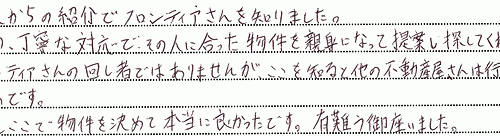 からの紹介でフロンティアさんを知りました。
、丁寧な対応で、その人に合った物件を親身になって提案し探してく
ティアさんの回し者ではありませんが、ここを知ると他の不動産屋さんは行
のです。
ここで物件を決めて本当に良かったです。有難う御座いました。